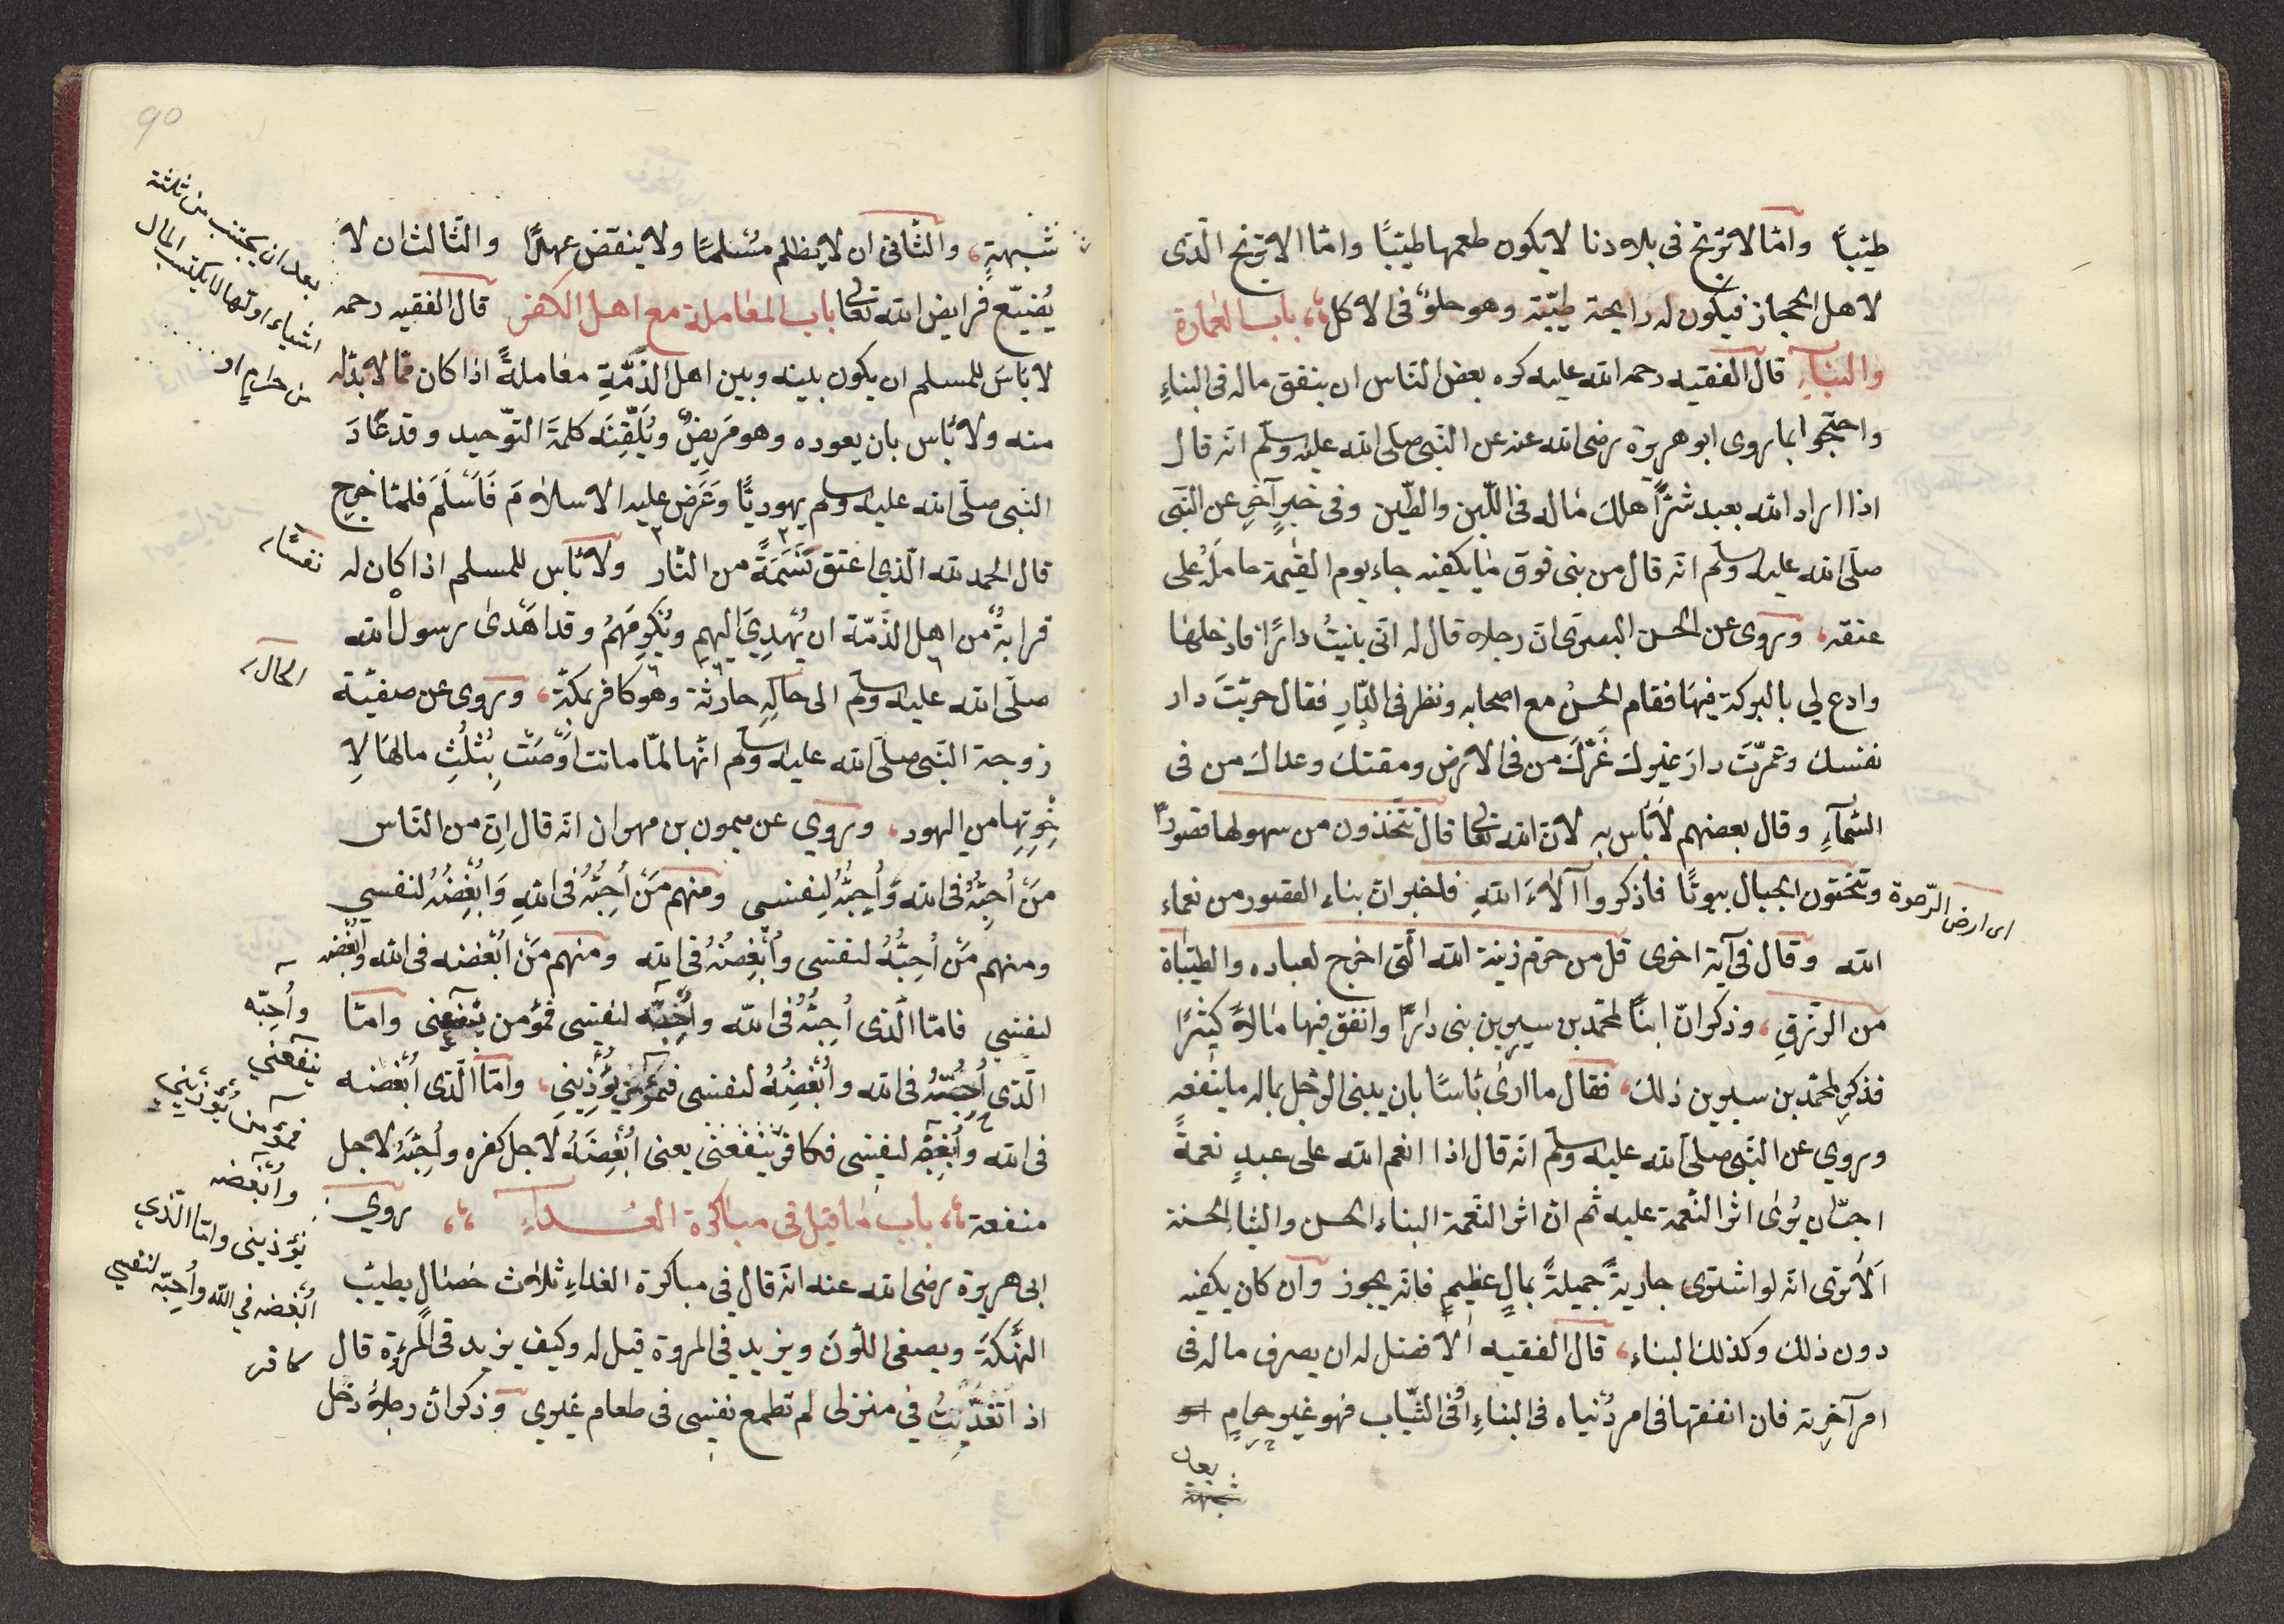 طيّبًا وامّا الاترنج فى بلادنا لا يكون طعمها طيّبًا وامّا الاترنج الّذى
لاهل الحجاز فيكون له رايحة طيّبة وهو حلو فى الاكل باب العمارة
والبناء قال الفقيه رحمه الله عليه كره بعض النّاس ان ينفق ماله فى البناءِ
واحتجّوا بما روى ابو هريرة رضى الله عنه عن النّبى صلّى الله عليه وسلّم انّه قال
اذا اراد الله بعبد شرًّا هلك ماله فى اللّبن والطّين وفى خبرٍ آخرٍ عن النّبى
صلّى الله عليه وسلّم انّه قال من بنى فوق ما يكفيه جاء يوم القيٰمة حامله على
عنقه، وروى عن الحسن البصرى انّ رجلا قال له انّى بنيتُ دارًا فادخلها
وادع لي بالبركة فيها فقام الحسنُ مع اصحابه ونظر فى الدّارِ فقال خربتَ دار
نفسك وعمّرتَ دارَ غيرك غرّك من فى الارض ومقتك وعداك من فى
السّمآءِ وقال بعضهم لا بأس به لانّ الله تعالى قال تتّخذون من سهولها قصورًا
وتنحتون الجبال بيوتًا فاذكروا آلآءَ اللهِ فاخبر ان بناء القصور من نعماء
اى ارض الرّخوة
الله وقال فى آية اخرى قل من حرّم زينة الله الّتى اخرج لعباده والطيّبات
من الرّزقِ، وذكر انّ ابنًا لمحمّد بن سيرين بنى دارًا وانفق فيها مالاً كثيرًا
فذكر لمحمّد بن سيرين ذلك، فقال ما ارى بأسًا بان يبنى الرّجل بماله ما ينفعه
وروي عن النّبى صلّى الله عليه وسلّم انّه قال اذا انعم الله على عبدٍ نعمةً
احبّ ان يُرى اثر النّعمة عليه ثم انّ اثر النّعمة البناء الحسن والثياب الحسنة
الا ترى انّه لو اشترى جاريةً جميلةً بمالٍ عظيمٍ فانّه يجوز وان كان يكفيه
دون ذلك وكذلك البناء، قال الفقيه الافضل له ان يصرف ماله فى
امر آخرته فان انفقها فى امر دُنياه فى البناءِ او فى الثّياب فهو غير حرامٍ
بعد
شبهةٍ، والثّانى ان لا يظلم مُسْلمًا ولا ينقض عهدًا والثّالث ان لا
بعد ان يجتنب من ثلثة
اشياء اولها لا يكتسب المال
من حرامٍ او
يُضَيّع فرايض الله تعالى باب المعاملة مع اهل الكفر قال الفقيه رحمه
لا بأسَ للمسلم ان يكون بينه وبين اهل الذّمّةِ معاملةً اذا كان ممّا لا بدّ له
منه ولا بأس بان يعوده وهو مَريضٌ ويُلَقّنَه كلمةَ التّوحيد وقد عَادَ
النّبى صلّى الله عليه وسلّم يهوديًّا وعَرَض عليه الاسلامَ فَاَسْلَمَ فلمّا خرج
قال الحمد لله الّذي اعتق نَسَمَةً من النّار ولا بأس للمسلم اذا كان له
نفسًا
قرابةٌ من اهل الذّمّة ان يُهْدِيَ اليهم ويُكرِمَهُم وقد اهدى رسول الله
صلّى الله عليه وسلّم الى خالِهِ حارثة وهو كافر بمكّة، وروى عن صفيّة
الحال
زوجة النّبى صلّى الله عليه وسلّم انّها لمّا ماتت اوصَتْ بِثُلُثِ مالها لِا
خوتِها من اليهود، وروي عن ميمون بن مهران انّه قال اِنّ من النّاس
مَنْ اُحِبّهُ فى الله واُحِبّهُ لِنفسى ومنهم مَنْ اُحِبّهُ فى اللهِ وَاُبْغِضُهُ لنفسي
ومنهم مَنْ اُحِبُّهُ لنفسى واُبْغِضُهُ فى الله ومنهم مَنْ اُبْغضه فى الله واُبغضه
لنفسي فامّا الّذى اُحِبُّهُ فى الله واُحِبّه لنفسى فمؤمن ينفعنى وامّا
واُحِبّه
ينفعني
الّذى اُحِبُّهُ فى الله واُبْغِضُهُ لنفسى فمؤمن يُؤْذِينِي، وامّا الّذى اُبْغضه
فمؤمن يُؤْذيني
فى الله واُبغضه لنفسى فكافر ينفعنى يعنى اُبْغِضَهُ لاجل كفره واُحِبَّهُ لاجل
واُبْغضه
يؤذينى وامّا الّذي
اُبغضه في الله واُحِبّه لنفسي
كافر
منفعة باب ما قيل فى مباكرة الغداء روي
ابى هريرة رضى الله عنه انّه قال في مباكرة الغداءِ ثلاث خصالٍ يطيب
النّكهَةَ ويصفى اللّونَ ويزيد في المروة قيل له وكيف يزيد فى المُرؤة قال
اذا تَغَدَّيْتُ في منزلى لم تطمع نفسى فى طعام غيري وذكر انّ رجلا دخل
90